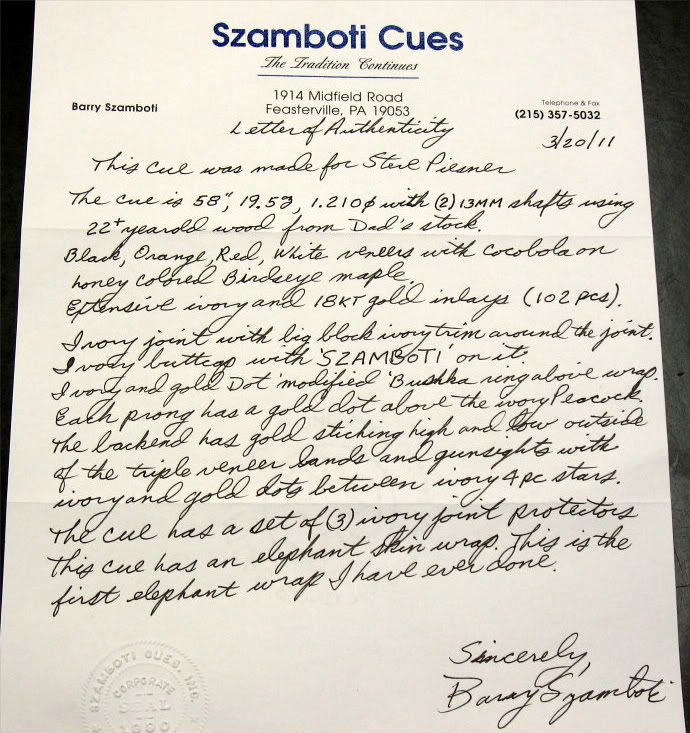 Szamboti Cues
The Tradition Continues
1914 Midfield Road
Barry Szamboti
Feasterville, PA 19053
Telephone & Fax
(215) 357-5032
Letter of Authenticity
3/20/11
This cue was made for Steve Piesner
The cue is 58", 19.53, 1.210⌀ with (2) 13MM shafts using
22+ yearold wood from Dad's stock.
Black, Orange, Red, White veneers with cocobola on
honey colored Birdseye maple.
Extensive ivory and 18KT gold inlays (102 pcs).
Ivory joint with big block ivory trim around the joint.
Ivory buttcap with 'SZAMBOTI' on it.
Ivory and gold Dot 'modified 'Bushka ring above wrap.
Each prong has a gold dot above the ivory Peacock.
The backend has gold stiching high and low outside
of the triple veneer bands and gunsights with
ivory and gold dots between ivory 4 pc stars.
The cue has a set of (3) ivory joint protectors
This cue has an elephant skin wrap. This is the
first elephant wrap I have ever done.
Sincerely,
Barry Szamboti
SZAMBOTI CUES, INC.
CORPORATE
SEAL
1990